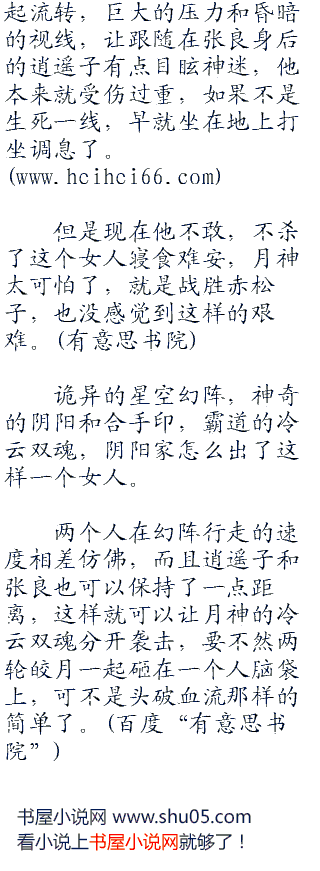 起流转，巨大的压力和昏暗
的视线，让跟随在张良身后
的逍遥子有点目眩神迷，他
本来就受伤过重，如果不是
生死一线，早就坐在地上打
坐调息了。
(www.hcihci66.com)
但是现在他不敢，不杀
了这个女人寝食难安，月神
太可怕了，就是战胜赤松
子，也没感觉到这样的艰
难。(有意思书院)
诡异的星空幻阵，神奇
的阴阳和合手印，霸道的冷
云双魂，阴阳家怎么出了这
样一个女人。
两个人在幻阵行走的速
度相差仿佛，而且逍遥子和
张良也可以保持了一点距
离，这样就可以让月神的冷
云双魂分开袭击，要不然两
轮皎月一起砸在一个人脑袋
上，可不是头破血流那样的
简单了。(百度“有意思书
院”)
书屋小说网 www.shu05.com
看小说上书屋小说网就够了！